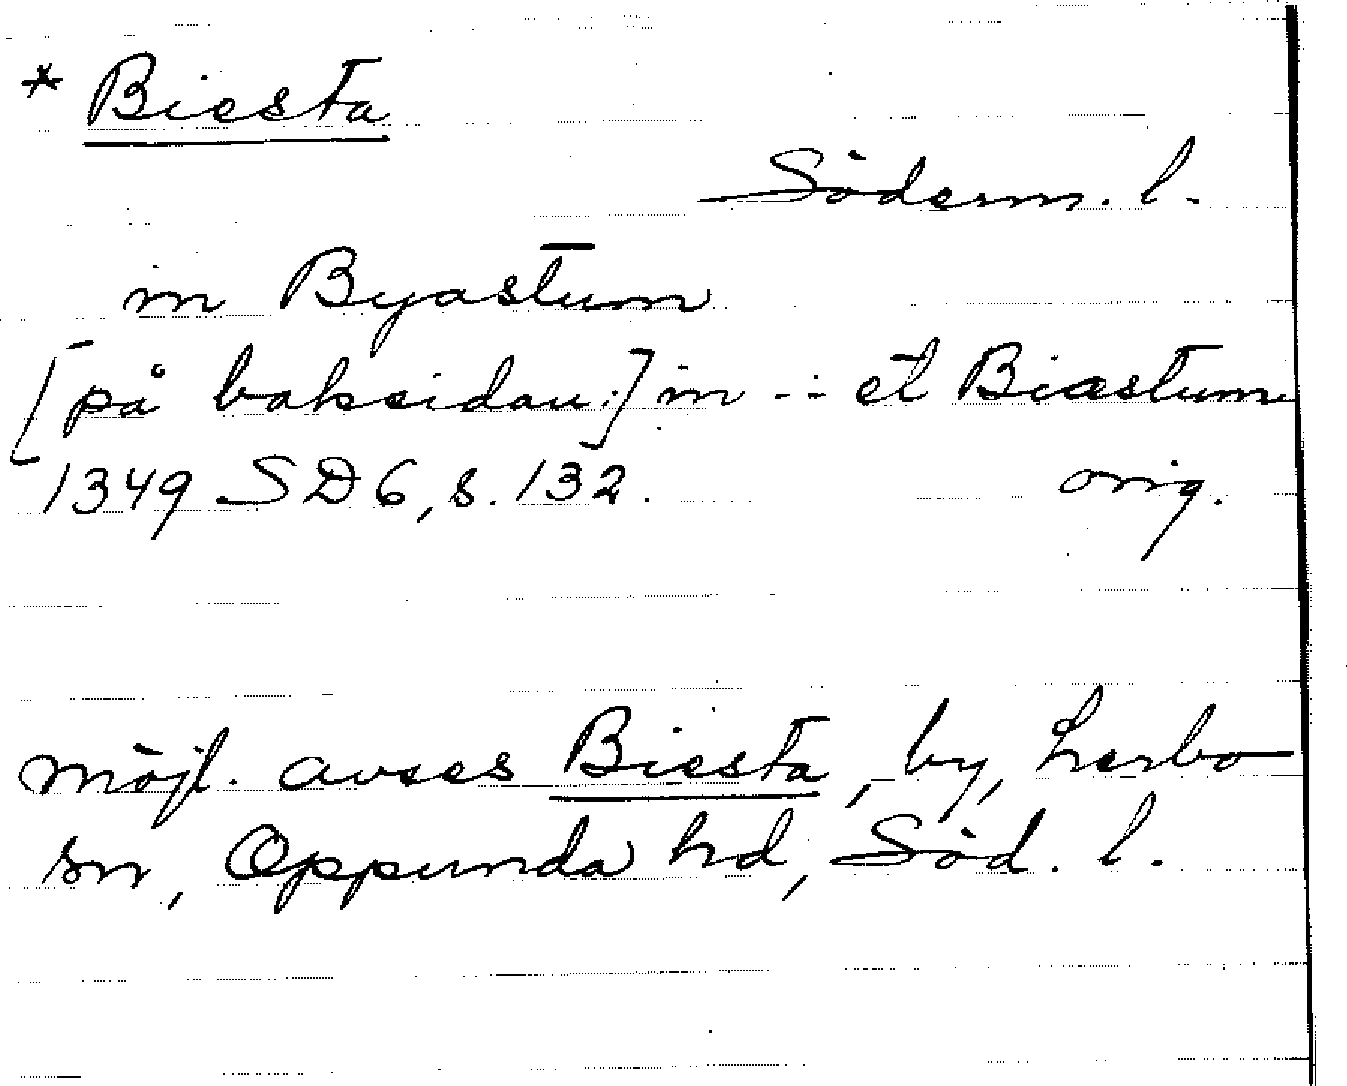 * Biesta
Söderm. l.
in Byastum
[på baksidan:] in -- et Biastum
1349 SD 6, s. 132. orig.
möjl. avses Biesta, by, Lerbo
sn, Oppunda hd, Söd. l.